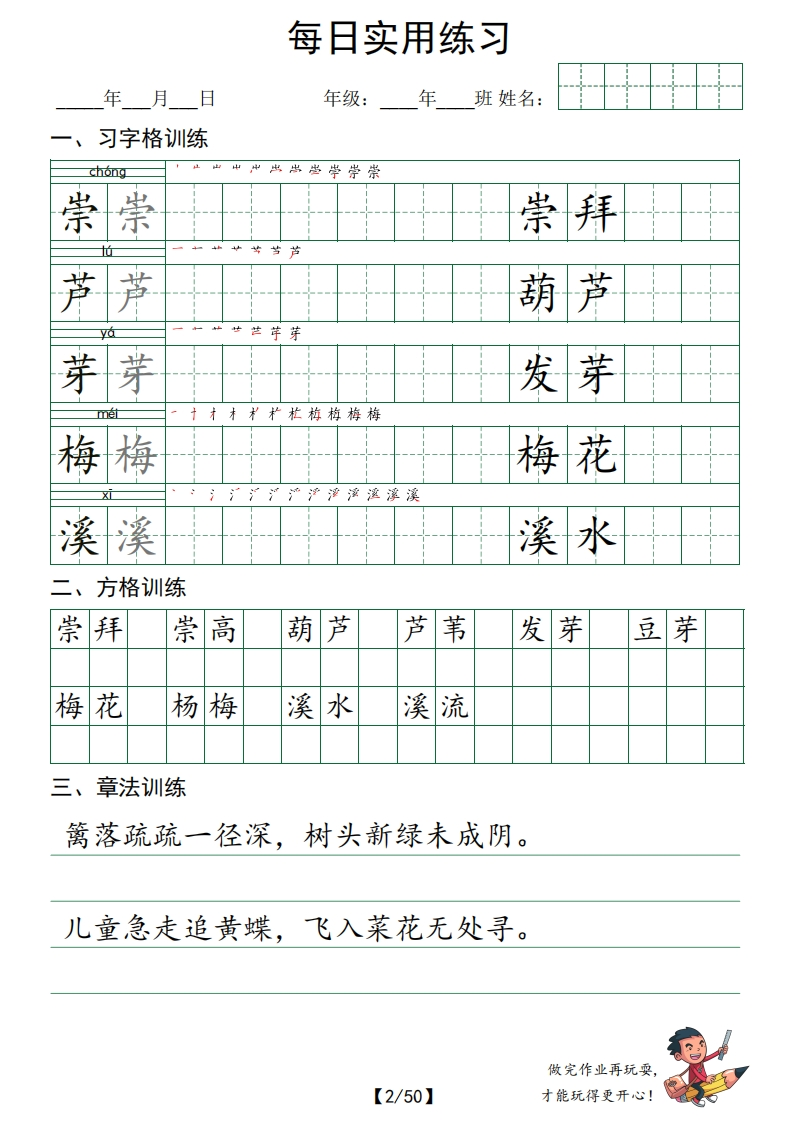 每日实用练习
_____年___月___日 年级：____年____班 姓名：
一、习字格训练
chóng 崇
崇 崇 崇 拜
lú 芦
芦 芦 葫 芦
yá 芽
芽 芽 发 芽
méi 梅
梅 梅 梅 花
xī 溪
溪 溪 溪 水
二、方格训练
崇 拜 崇 高 葫 芦 芦 苇 发 芽 豆 芽
梅 花 杨 梅 溪 水 溪 流
三、章法训练
篱落疏疏一径深，树头新绿未成阴。
儿童急走追黄蝶，飞入菜花无处寻。
做完作业再玩耍，
才能玩得更开心！
【2/50】